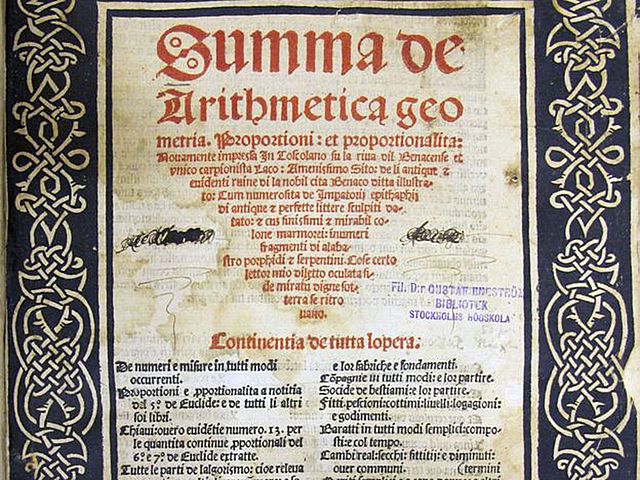 Summa de
Arithmetica geo
metria. Proportioni: et proportionalita:
Nouamente impressa In Toscolano su la riua dil Benacense et
vnico carpionista Laco: Amenissimo Sito: de li antique et
euidenti ruine di la nobil cita Benaco ditta illustra-
to: Cum numerosita de Imperatorij epithaphij
di antique et perfette littere sculpiti do-
tato: et cum finissimi et mirabil co-
lone marmorei: inumeri
fragmenti di alaba-
stro porphidi et serpentini. Cose certo
lettor mio diletto oculata fi-
de miratu digne sot-
terra se ritro
uano.
FIL. D:r GUSTAF ENESTRÖM
BIBLIOTEK
STOCKHOLMS HÖGSKOLA
Continentia de tutta lopera.
De numeri e misure in tutti modi
occurrenti.
Proportioni e ꝓportionalita a notitia
del 5º de Euclide: e de tutti li altri
soi libri.
Chiaui: ouero euidẽtie numero .13. per
le quantita continue ꝓportionali del
6º e 7º de Euclide extratte.
Tutte le parti de lalgorismo: cioe releua
e lor fabriche e fondamenti.
Cõpagnie in tutti modi: e lor partire.
Socide de bestiami: e lor partire.
Fitti: pescioni: cottimi: liuelli: logagioni:
e godimenti.
Baratti in tutti modi semplici: compo-
sti: e col tempo.
Cambi reali: secchi: fittitij: e diminuti:
ouer communi. (termini